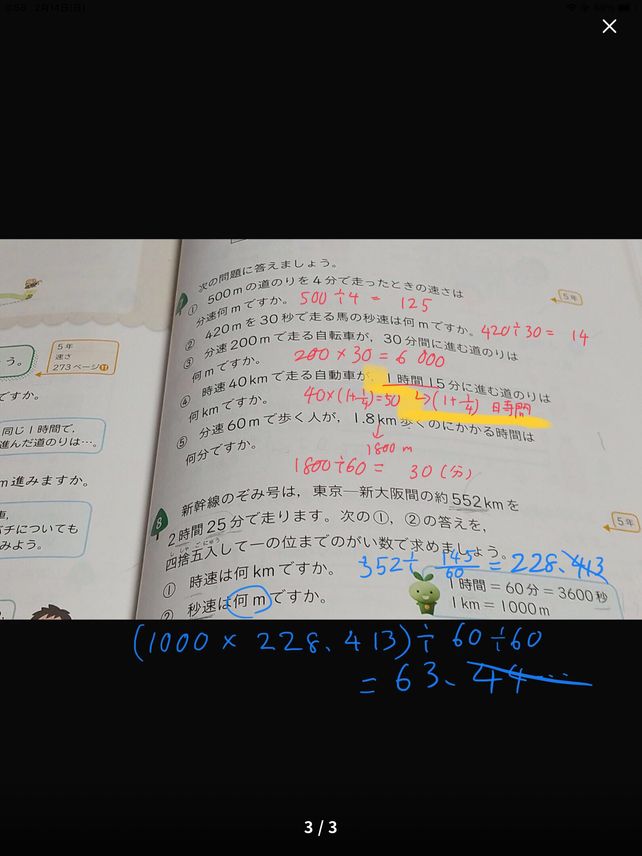 2月14日(日)
次の問題に答えましょう。
① 500mの道のりを4分で走ったときの速さは
分速何mですか。 500÷4 = 125
5年
② 420mを30秒で走る馬の秒速は何mですか。 420÷30 = 14
③ 分速200mで走る自転車が，30分間に進む道のりは
何mですか。 200×30=6000
④ 時速40kmで走る自動車が，1時間15分に進む道のりは
何kmですか。 40×(1+1/4)=50 ↳(1+1/4) 時間
⑤ 分速60mで歩く人が，1.8km歩くのにかかる時間は
何分ですか。 1800m
1800÷60= 30(分)
8 新幹線のぞみ号は，東京―新大阪間の約552kmを
2時間25分で走ります。次の①，②の答えを，
5年
四捨五入して一の位までのがい数で求めましょう。
ししゃごにゅう
① 時速は何kmですか。 552÷ 145/60 = 228.413
② 秒速は何mですか。
1時間＝60分＝3600秒
1km＝1000m
5年
速さ
273ページ⑪
う。
ですか。
同じ1時間で，
進んだ道のりは…。
m進みますか。
バチについても
みよう。
(1000 × 228.413)÷60÷60
= 63.44…
3 / 3